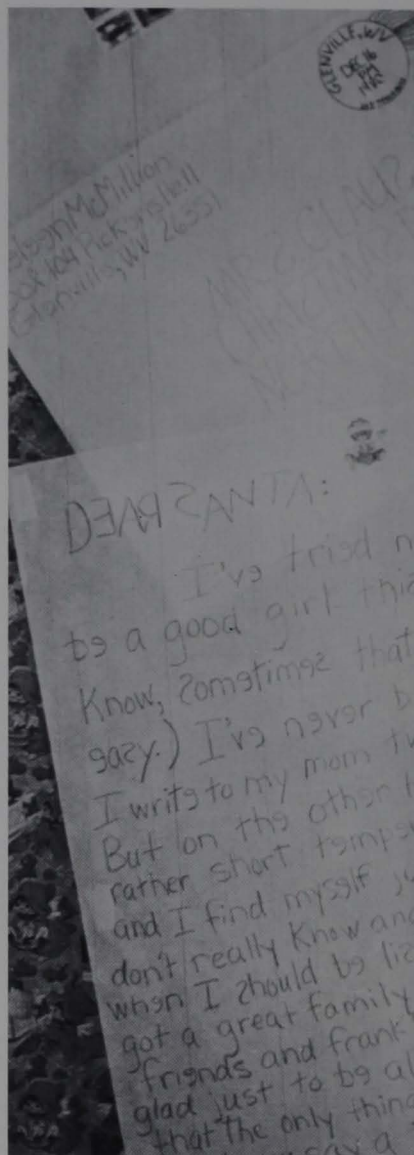 GLENVILLE, WV
DEC 16
PM
McMillion
Box 104 Pickens Hall
Glenville, WV 26351
CLAUS
DEAR SANTA:
I've tried n
be a good girl this
Know, sometimes that
easy.) I've never b
I write to my mom tw
But on the other h
rather short tempe
and I find myself ju
don't really know and
when I should be lis
got a great family,
friends and frank
glad just to be al
that the only thing
say a